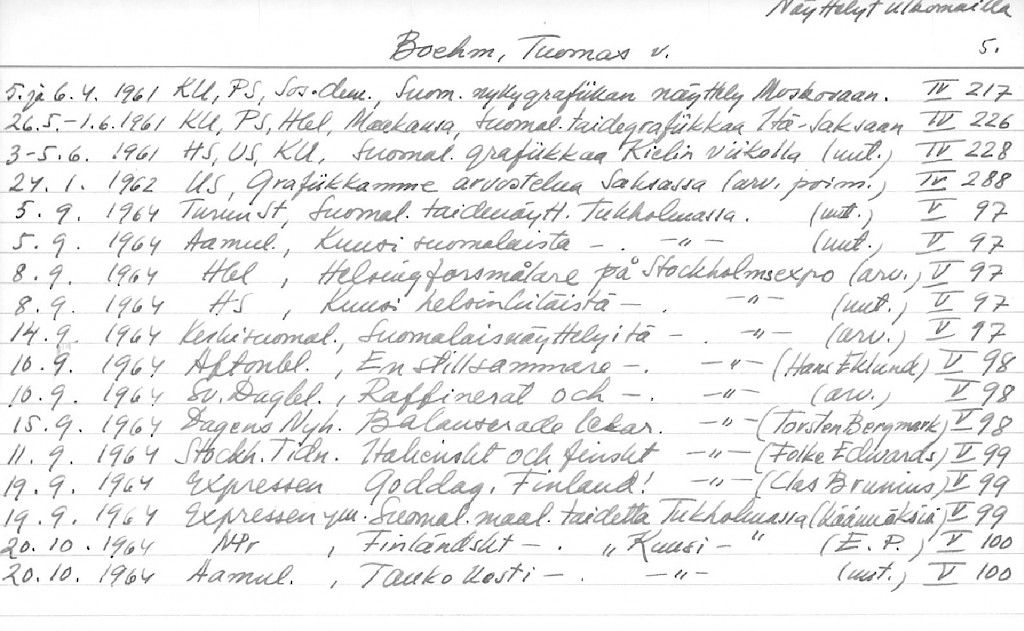 Näyttelyt ulkomailla
Boehm, Tuomas v. 5.
5. ja 6.4. 1961 KU, PS, Sos.dem., Suom. nykygrafiikan näyttely Moskovaan. IV 217
26.5.-1.6.1961 KU, PS, Hbl, Maakansa, Suomal. taidegrafiikkaa Itä-Saksaan IV 226
3-5.6. 1961 HS, US, KU, Suomal. grafiikkaa Kielin viikolla (uut.) IV 228
24.1. 1962 US, Grafiikkamme arvostelua Saksassa (arv. poim.) IV 288
5.9. 1964 Turun St, Suomal. taidenäytt. Tukholmassa. (uut.) V 97
5.9. 1964 Aamul., Kuusi suomalaista - . -"- (uut.) V 97
8.9. 1964 Hbl , Helsingforsmålare på Stockholmsexpo (arv.) V 97
8.9. 1964 HS , Kuusi helsinkiläistä - . -"- (uut.) V 97
14.9. 1964 Keskisuomal., Suomalaisnäyttelyitä - . -"- (arv.) V 97
10.9. 1964 Aftonbl. , En stillsammare - . -"- (Hans Eklund) V 98
10.9. 1964 Sv. Dagbl. , Raffinerat och - . -"- (arv.) V 98
15.9. 1964 Dagens Nyh. Balanserade lekar. -"- (Torsten Bergmark) V 98
11.9. 1964 Stockh. Tidn. Italienskt och finskt -"- (Folke Edwards) V 99
19.9. 1964 Expressen Goddag, Finland! -"- (Clas Brunius) V 99
19.9. 1964 Expressen ym. Suomal. maal. taidetta Tukholmassa (käännöksiä) V 99
20.10. 1964 NPr , Finländskt - . "Kuusi - " (E.P.) V 100
20.10. 1964 Aamul. , Tauko Uosti - . -"- (uut.) V 100